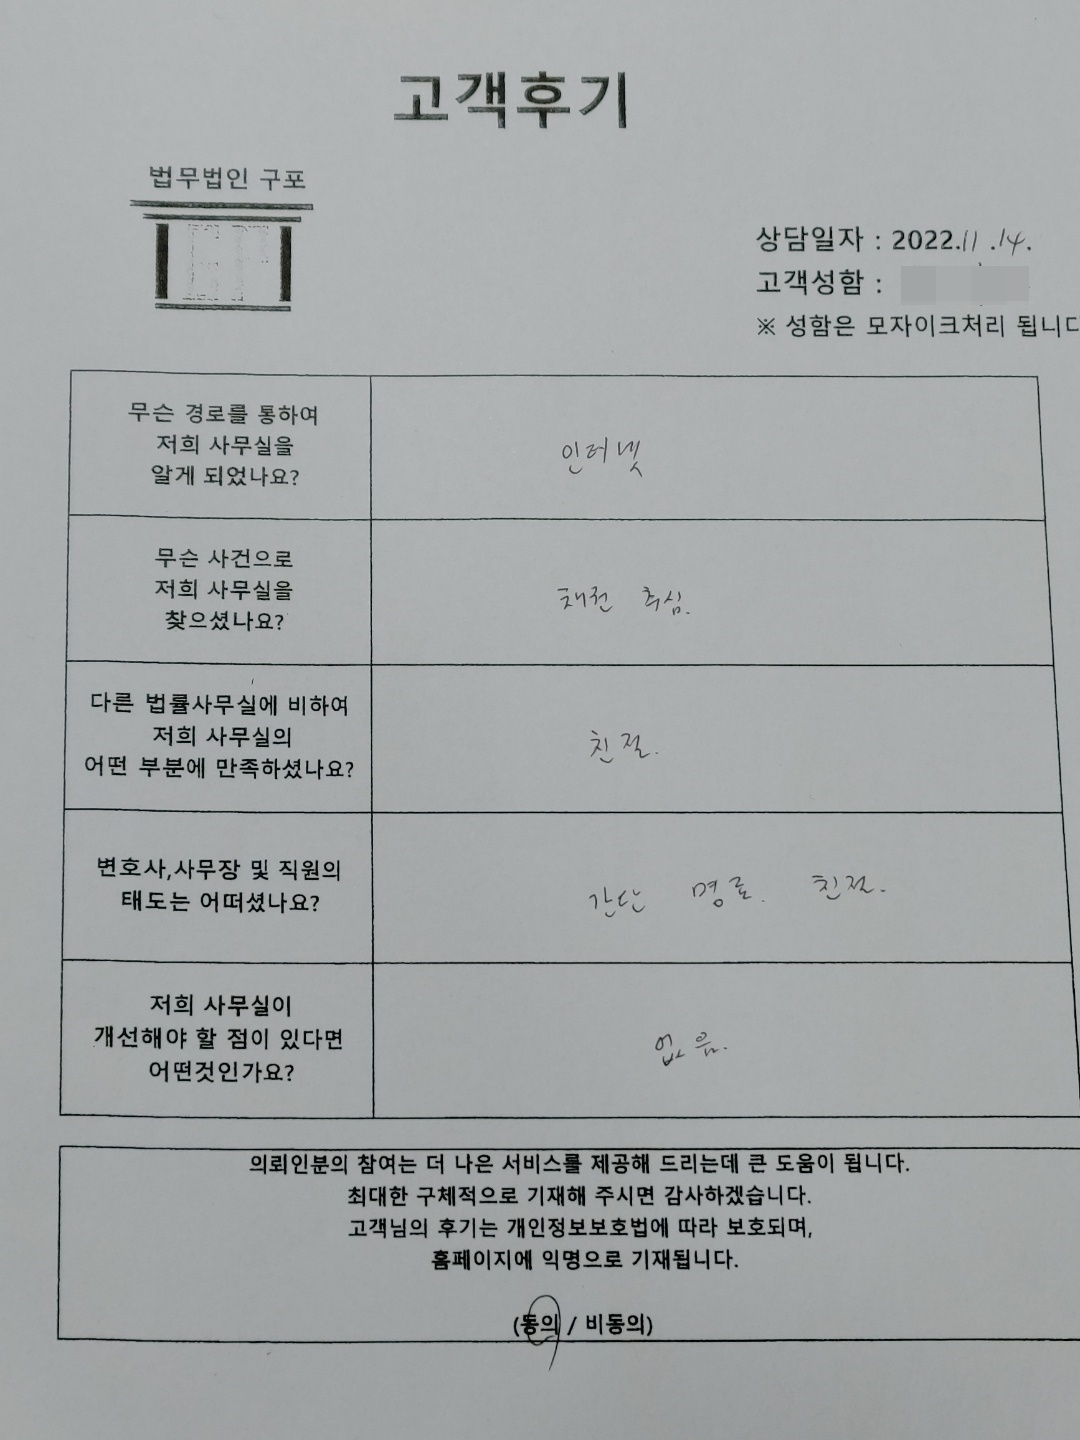 고객후기
법무법인 구포
상담일자 : 2022.11.14.
고객성함 :
※ 성함은 모자이크처리 됩니다
무슨 경로를 통하여
저희 사무실을
알게 되었나요?
인터넷
무슨 사건으로
저희 사무실을
찾으셨나요?
채권 추심.
다른 법률사무실에 비하여
저희 사무실의
어떤 부분에 만족하셨나요?
친절.
변호사,사무장 및 직원의
태도는 어떠셨나요?
간단 명료. 친절.
저희 사무실이
개선해야 할 점이 있다면
어떤것인가요?
없음.
의뢰인분의 참여는 더 나은 서비스를 제공해 드리는데 큰 도움이 됩니다.
최대한 구체적으로 기재해 주시면 감사하겠습니다.
고객님의 후기는 개인정보보호법에 따라 보호되며,
홈페이지에 익명으로 기재됩니다.
(동의 / 비동의)